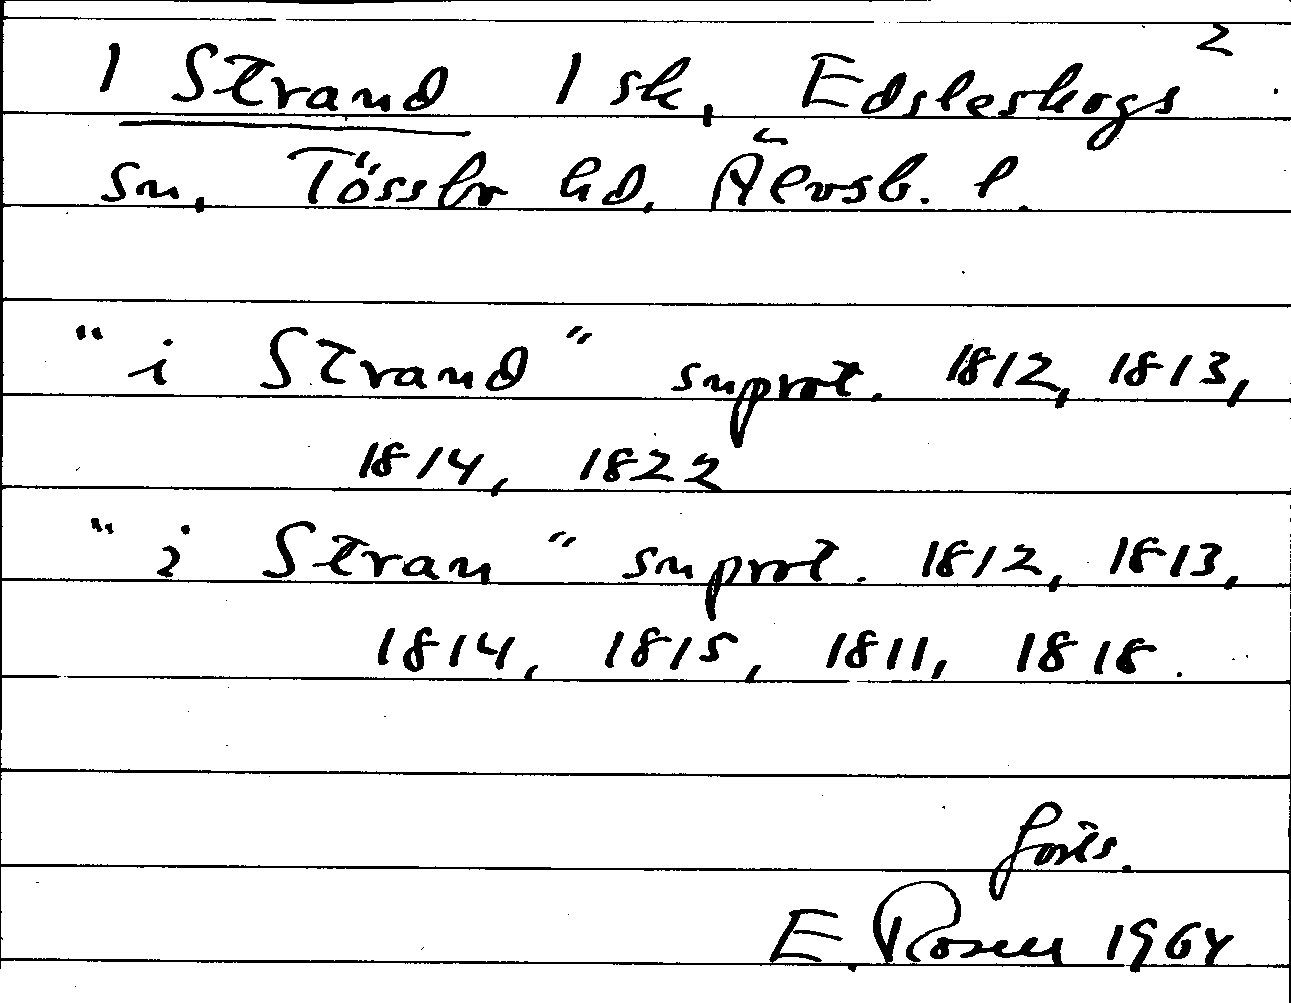 2
1 Strand 1 sk, Edsleskogs
sn, Tössbr hd, Älvsb. l.
"i Strand" snprot. 1812, 1813,
1814, 1822
"i Stran" snprot. 1812, 1813,
1814, 1815, 1811, 1818.
forts.
E. Rosell 1964